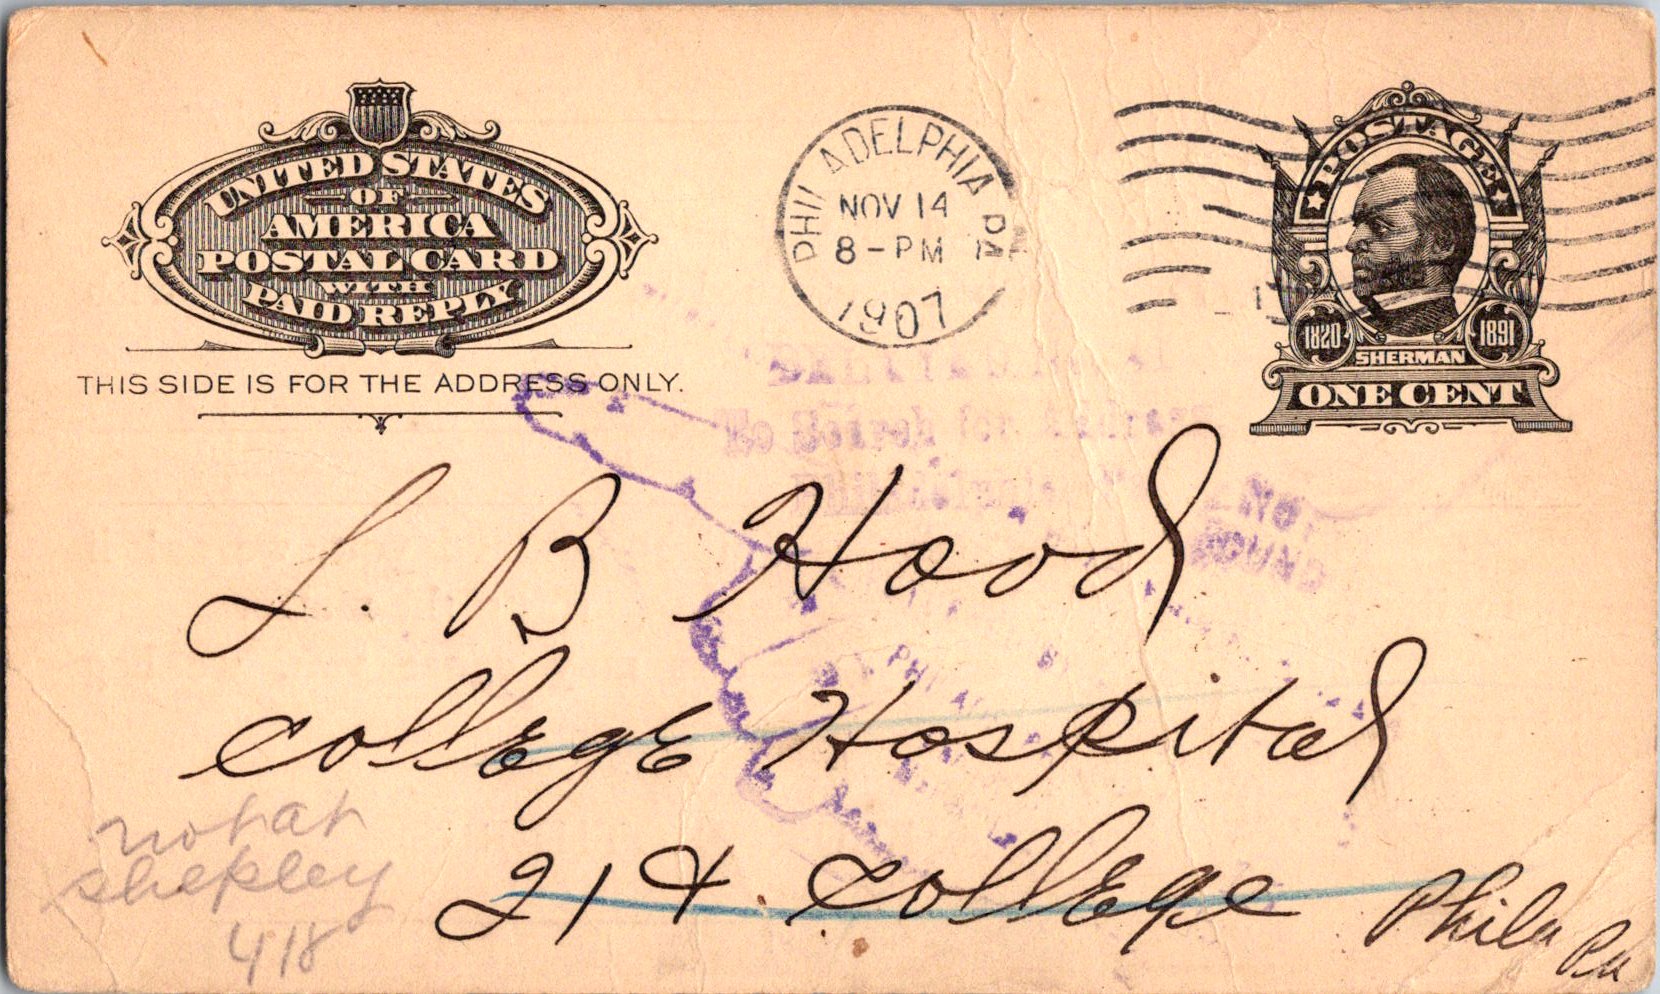 UNITED STATES
OF
AMERICA
POSTAL CARD
WITH
PAID REPLY
THIS SIDE IS FOR THE ADDRESS ONLY.
PHILADELPHIA PA
NOV 14
8-PM
1907
POSTAGE
1820 1891
SHERMAN
ONE CENT
L. B Hood
College Hospital
21 & College Phila Pa
not at
shepley
418